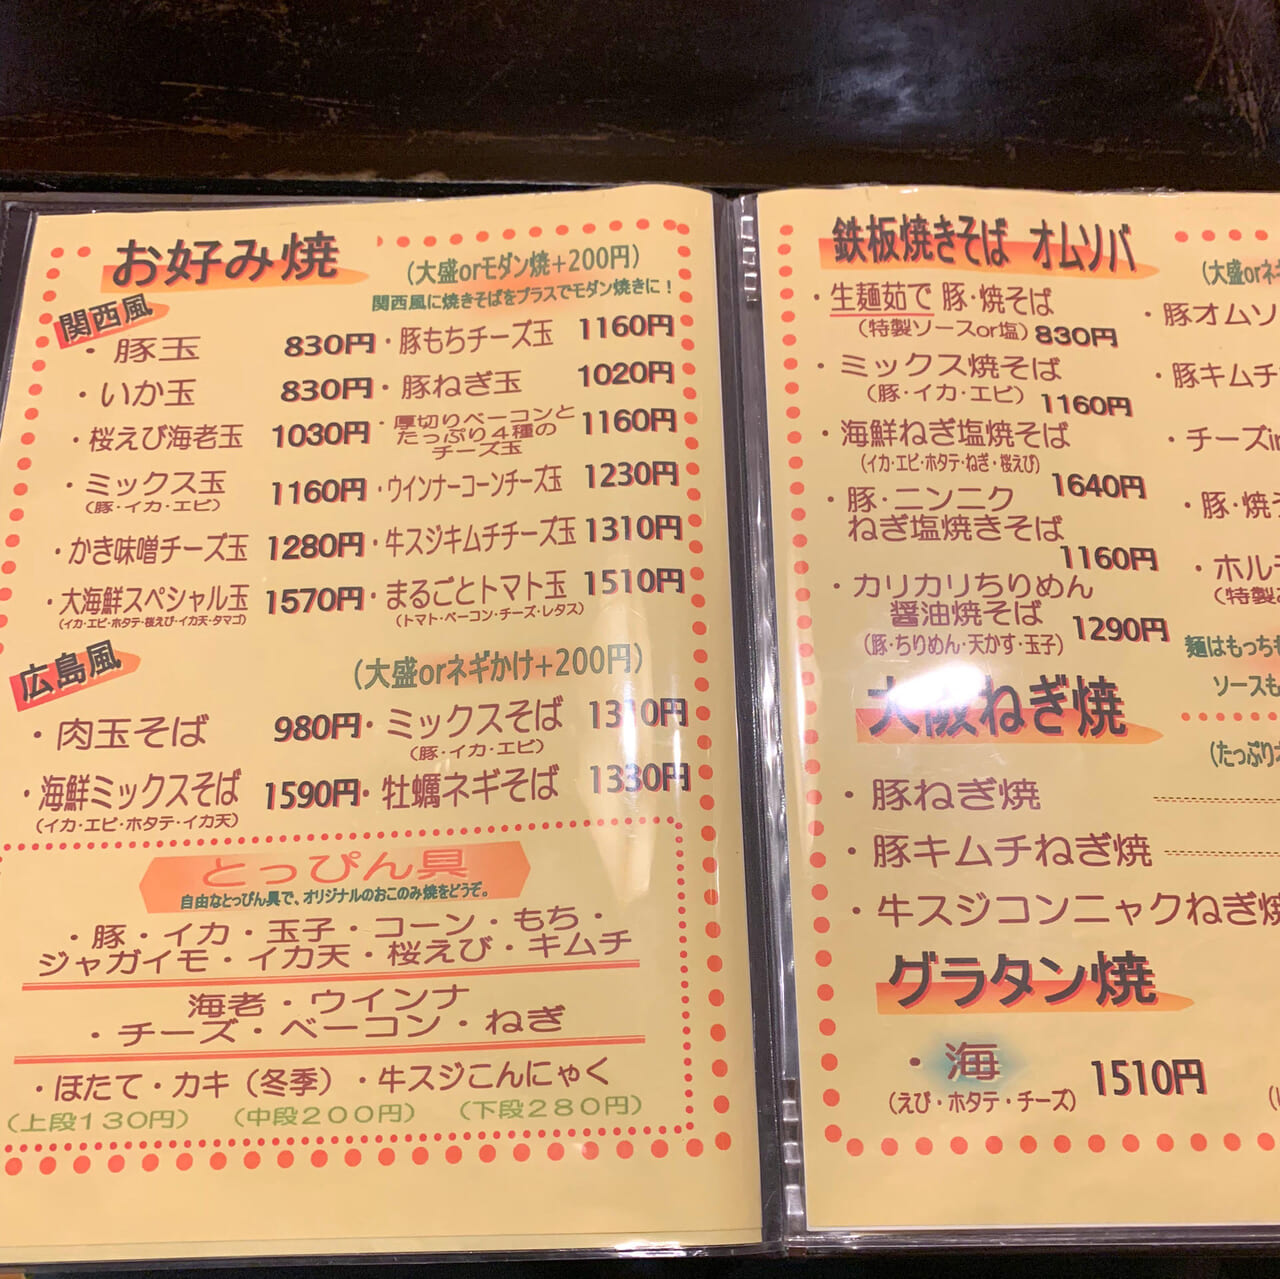 お好み焼
(大盛orモダン焼+200円)
関西風に焼きそばをプラスでモダン焼きに！
関西風
・豚玉 830円
・いか玉 830円
・桜えび海老玉 1030円
・ミックス玉 1160円
(豚・イカ・エビ)
・かき味噌チーズ玉 1280円
・大海鮮スペシャル玉 1570円
(イカ・エビ・ホタテ・桜えび・イカ天・タマゴ)
・豚もちチーズ玉 1160円
・豚ねぎ玉 1020円
・厚切りベーコンと
たっぷり４種の
チーズ玉 1160円
・ウインナーコーンチーズ玉 1230円
・牛スジキムチチーズ玉 1310円
・まるごとトマト玉 1510円
(トマト・ベーコン・チーズ・レタス)
広島風
(大盛orネギかけ+200円)
・肉玉そば 980円
・海鮮ミックスそば 1590円
(イカ・エビ・ホタテ・イカ天)
・ミックスそば 1310円
(豚・イカ・エビ)
・牡蠣ネギそば 1330円
とっぴん具
自由なとっぴん具で、オリジナルのおこのみ焼をどうぞ。
・豚・イカ・玉子・コーン・もち・
ジャガイモ・イカ天・桜えび・キムチ
海老・ウインナ
・チーズ・ベーコン・ねぎ
・ほたて・カキ（冬季）・牛スジこんにゃく
(上段１３０円) (中段２００円) (下段２８０円)
鉄板焼きそば オムソバ
(大盛orネ
・生麺茹で 豚・焼そば
(特製ソースor塩) 830円
・ミックス焼そば
(豚・イカ・エビ) 1160円
・海鮮ねぎ塩焼そば
(イカ・エビ・ホタテ・ねぎ・桜えび)
1640円
・豚・ニンニク
ねぎ塩焼きそば
1160円
・カリカリちりめん
醤油焼そば 1290円
(豚・ちりめん・天かす・玉子)
・豚オムソ
・豚キムチ
・チーズin
・豚・焼そ
・ホル
(特製
麺はもっちも
ソースも
大阪ねぎ焼
(たっぷり
・豚ねぎ焼
・豚キムチねぎ焼
・牛スジコンニャクねぎ焼
グラタン焼
・海 1510円
(えび・ホタテ・チーズ)